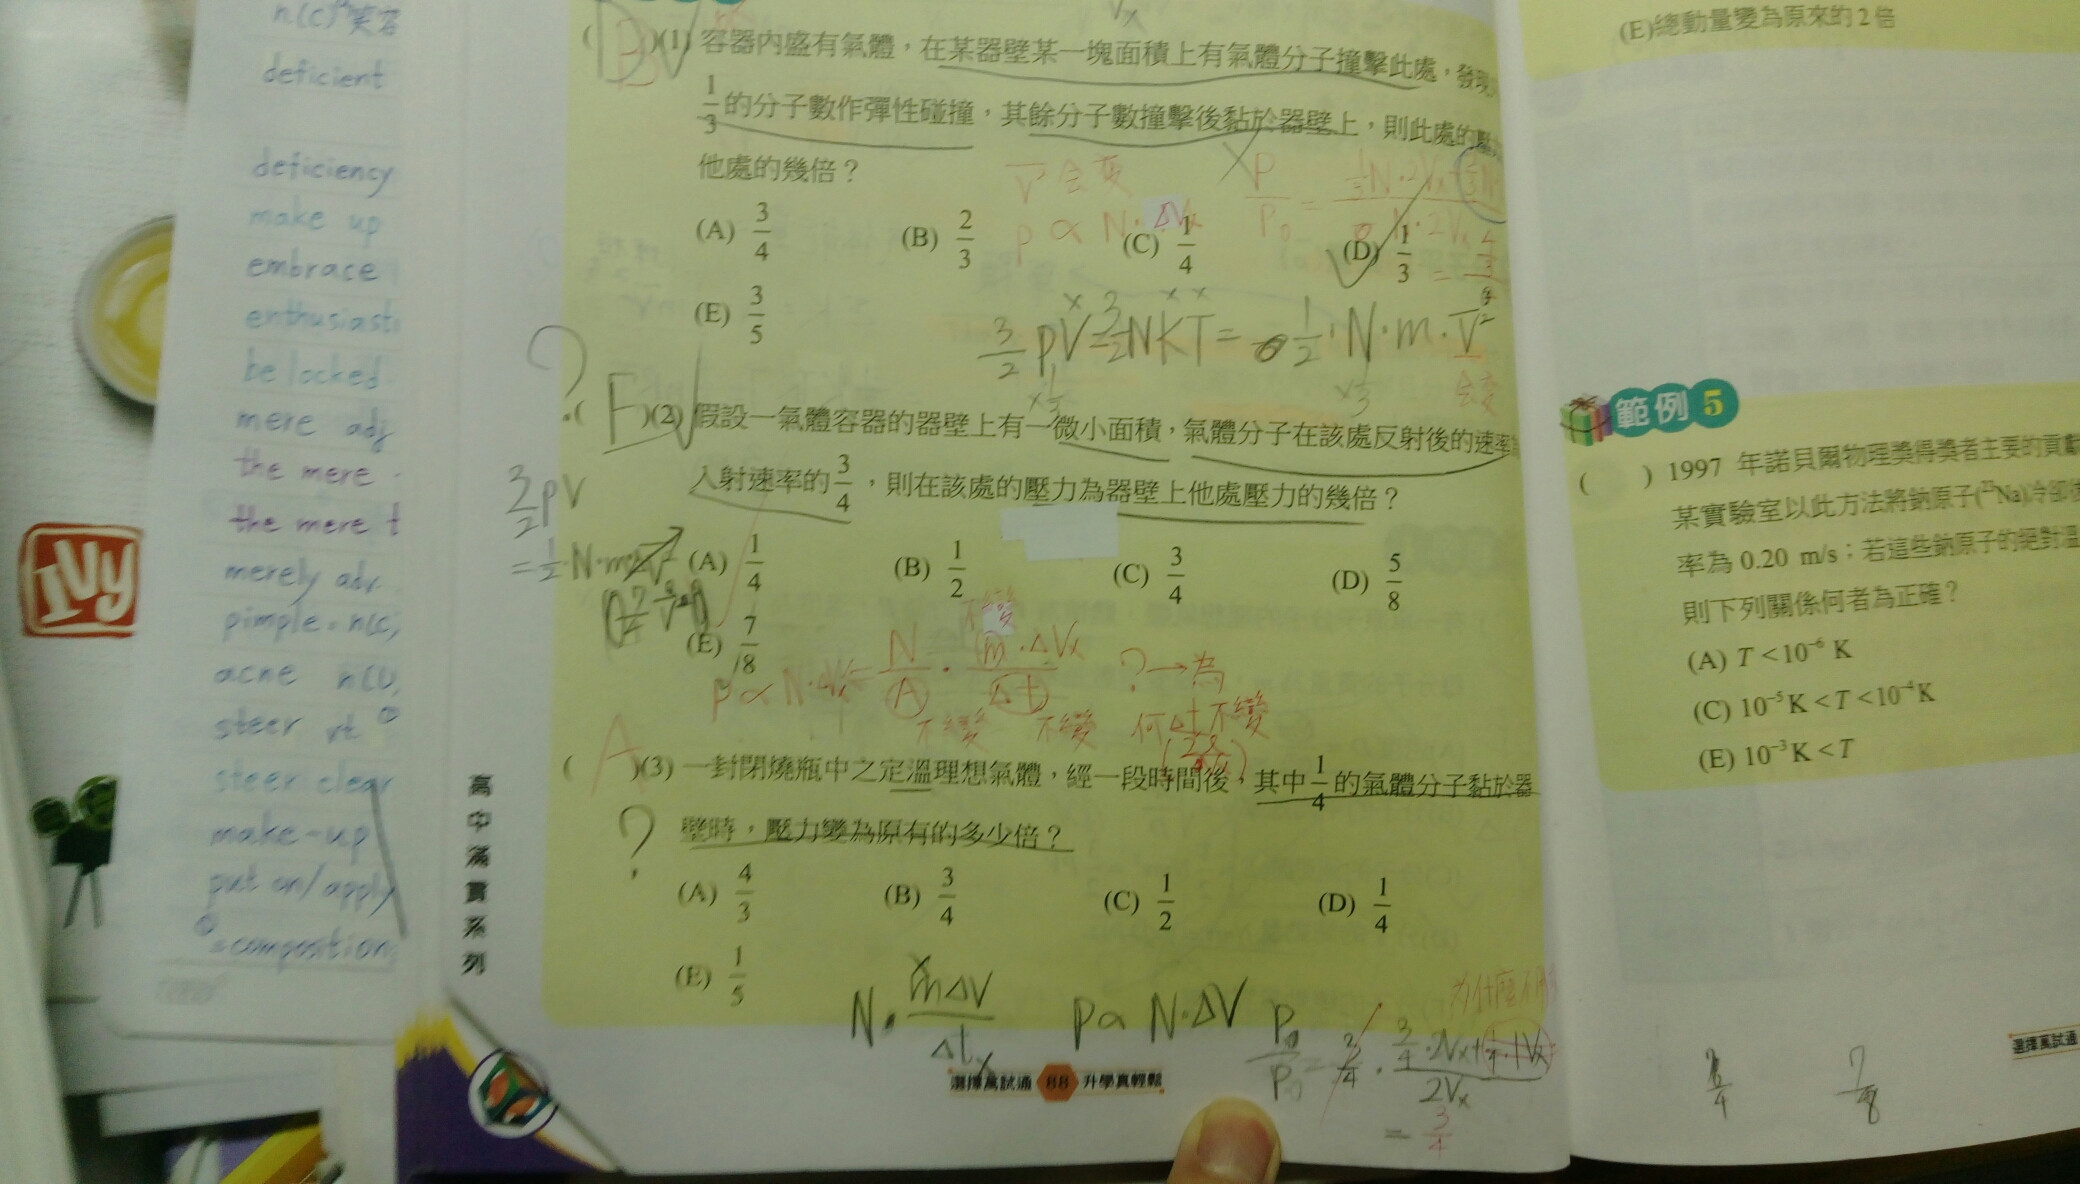 n.(c)笑容
deficient
deficiency
make up
embrace
be locked
mere adj
the mere
the mere t
merely adv.
pimple = n(c)
acne n(U)
steer vt
steer clear
make-up
put on/apply
=composition
Ivy
高中滿貫系列
(1) 容器內盛有氣體，在某器壁某一塊面積上有氣體分子撞擊此處，發現
1/3的分子數作彈性碰撞，其餘分子數撞擊後黏於器壁上，則此處的
他處的幾倍？
V 会变
P ∝ N·ΔVx
(A) 3/4 (B) 2/3 (C) 1/4 (D) 1/3
(E) 3/5
3/2 PV = 3/2 NKT = 1/2·N·m·V²
会变
?
(E)(2) 假設一氣體容器的器壁上有一微小面積，氣體分子在該處反射後的速率
入射速率的3/4，則在該處的壓力為器壁上他處壓力的幾倍？
3/2 PV
(A) 1/4 (B) 1/2 (C) 3/4 (D) 5/8
(E) 7/8
不變
P ∝ N·ΔVx = N/A · m·ΔVx/Δt ? → 為
不變 不變 何Δt不變
(A)(3) 一封閉燒瓶中之定溫理想氣體，經一段時間後，其中1/4的氣體分子黏於器
? 壁時，壓力變為原有的多少倍？
(A) 4/3 (B) 3/4 (C) 1/2 (D) 1/4
(E) 1/5
N· mΔV/Δt P ∝ N·ΔV
= 3/4
選擇萬試通 88 升學真輕鬆
(E)總動量變為原來的2倍
範例 5
( ) 1997 年諾貝爾物理獎得獎者主要的貢獻
某實驗室以此方法將鈉原子(²³Na)冷卻後
率為 0.20 m/s；若這些鈉原子的絕對溫
則下列關係何者為正確？
(A) T < 10⁻⁶ K
(C) 10⁻⁵ K < T < 10⁻⁴ K
(E) 10⁻³ K < T
選擇萬試通
7/8